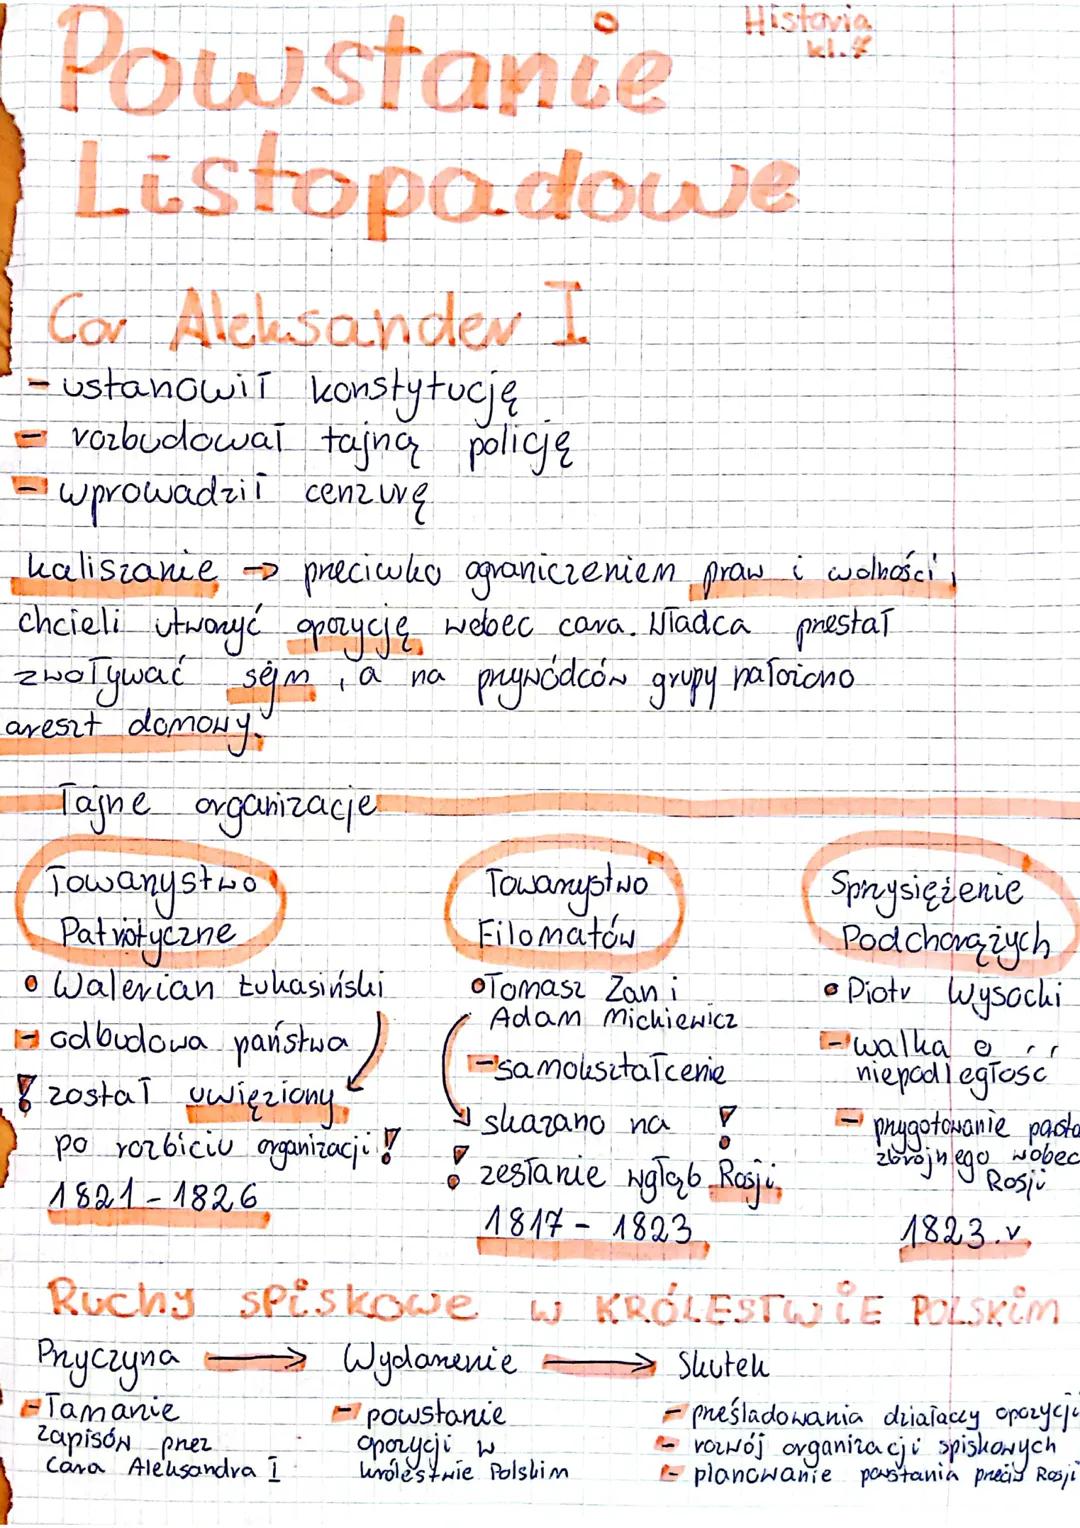 Historia
kl. 7
Powstanie
Listopadowe
Car Aleksander I
- ustanowił konstytucję
- rozbudował tajną policję
- wprowadził cenzurę
kaliszanie → przeciwko ograniczeniem praw i wolności,
chcieli utworzyć opozycję wobec cara. Władca przestał
zwoływać sejm, a na przywódców grupy nałożono
areszt domowy.
Tajne organizacje
Towarzystwo
Patriotyczne
• Walerian Łukasiński
- odbudowa państwa
! został uwięziony
po rozbiciu organizacji!
1821 - 1826
Towarzystwo
Filomatów
• Tomasz Zan i
Adam Mickiewicz
- samokształcenie
skazano na !
! zesłanie wgłąb Rosji
1817 - 1823
Sprzysiężenie
Podchorążych
• Piotr Wysocki
- walka o
niepodległość
- przygotowanie
zbrojnego wobec
Rosji
1823.r.
Ruchy spiskowe w KRÓLESTWiE POLSKiM
Przyczyna → Wydarzenie → Skutek
- łamanie
zapisów przez
cara Aleksandra I
- powstanie
opozycji w
królestwie Polskim
- prześladowania działaczy opozycji
- rozwój organizacji spiskowych
- planowanie powstania przeciw Rosji